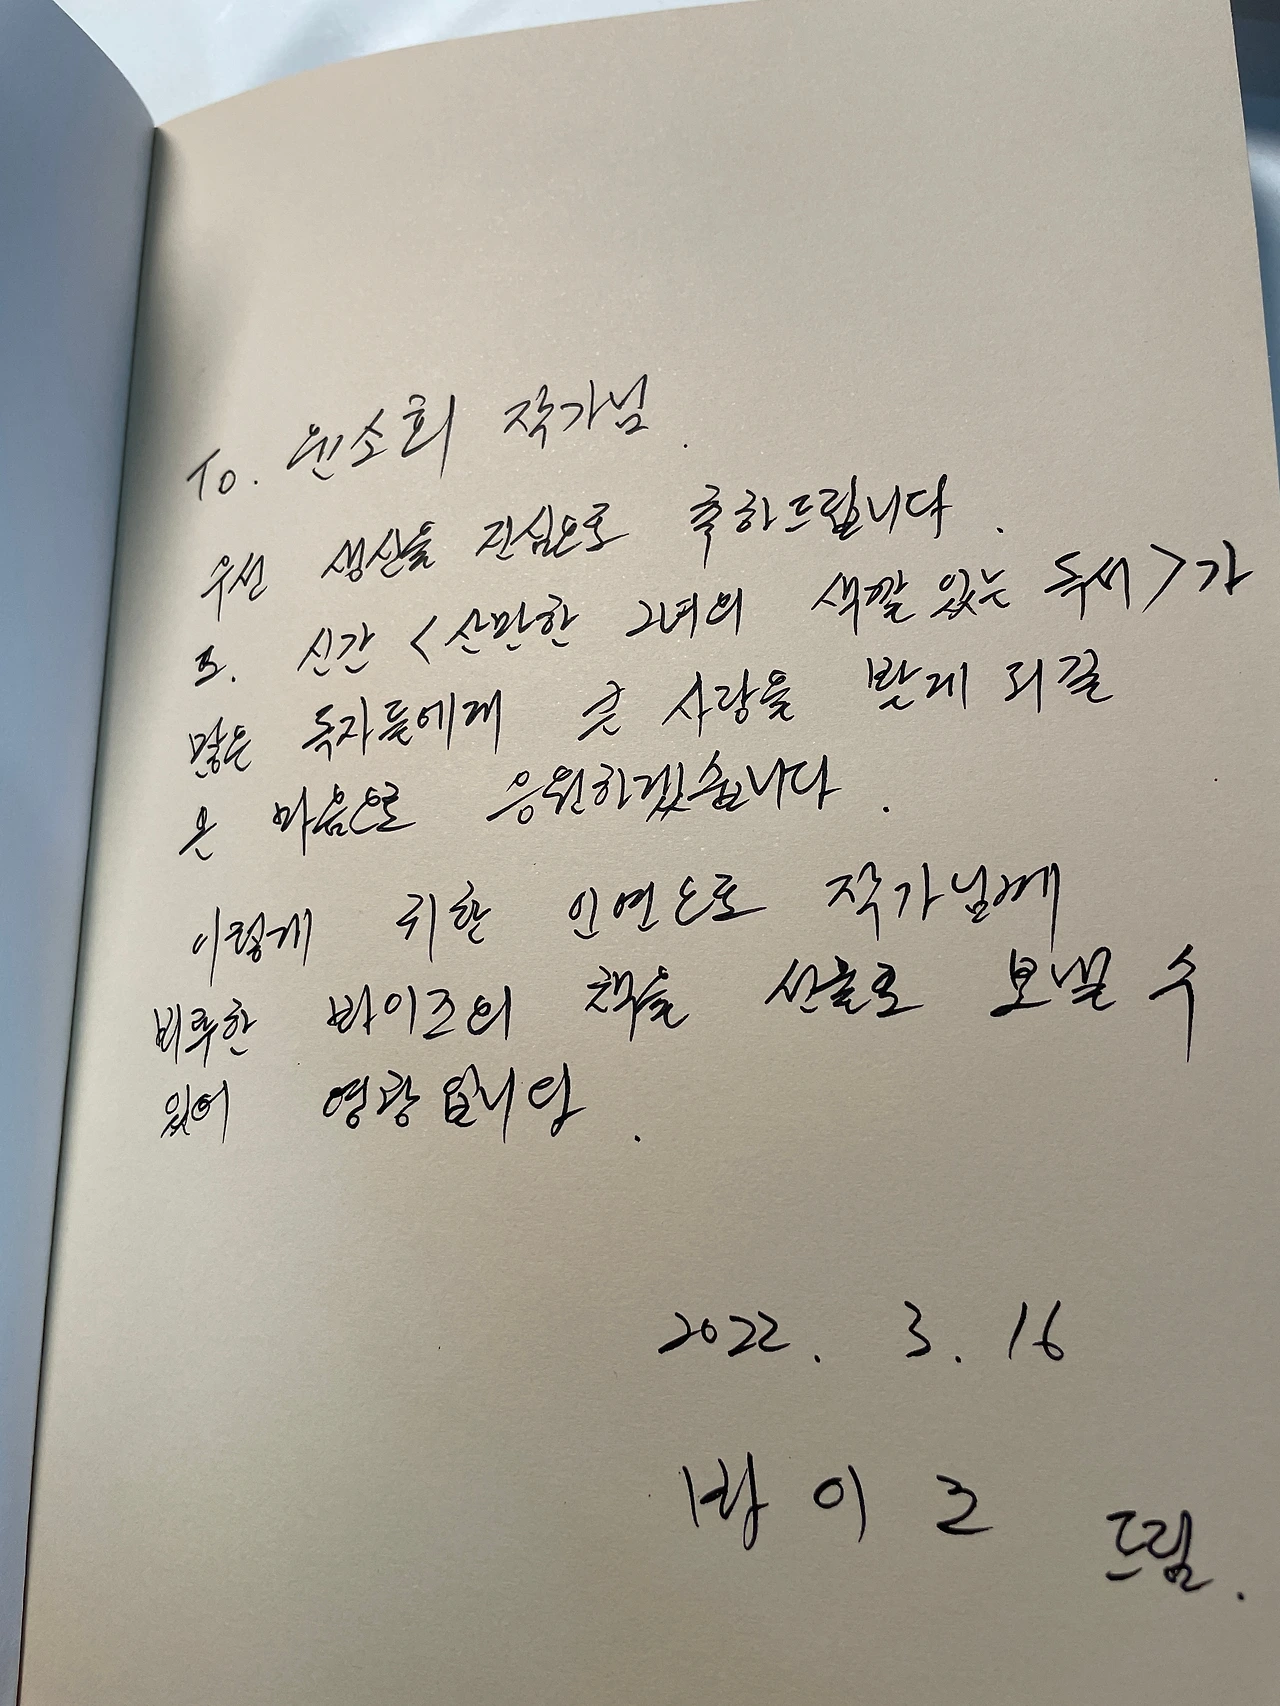 To. 윈소희 작가님.
우선 생신을 진심으로 축하드립니다.
또. 신간 <산만한 그녀의 색깔있는 독서>가
많은 독자들에게 큰 사랑을 받게 되길
온 마음으로 응원하겠습니다.
이렇게 귀한 인연으로 작가님께
비루한 바이즈의 책을 선물로 보낼 수
있어 영광입니다.
2022. 3. 16
바이즈 드림.